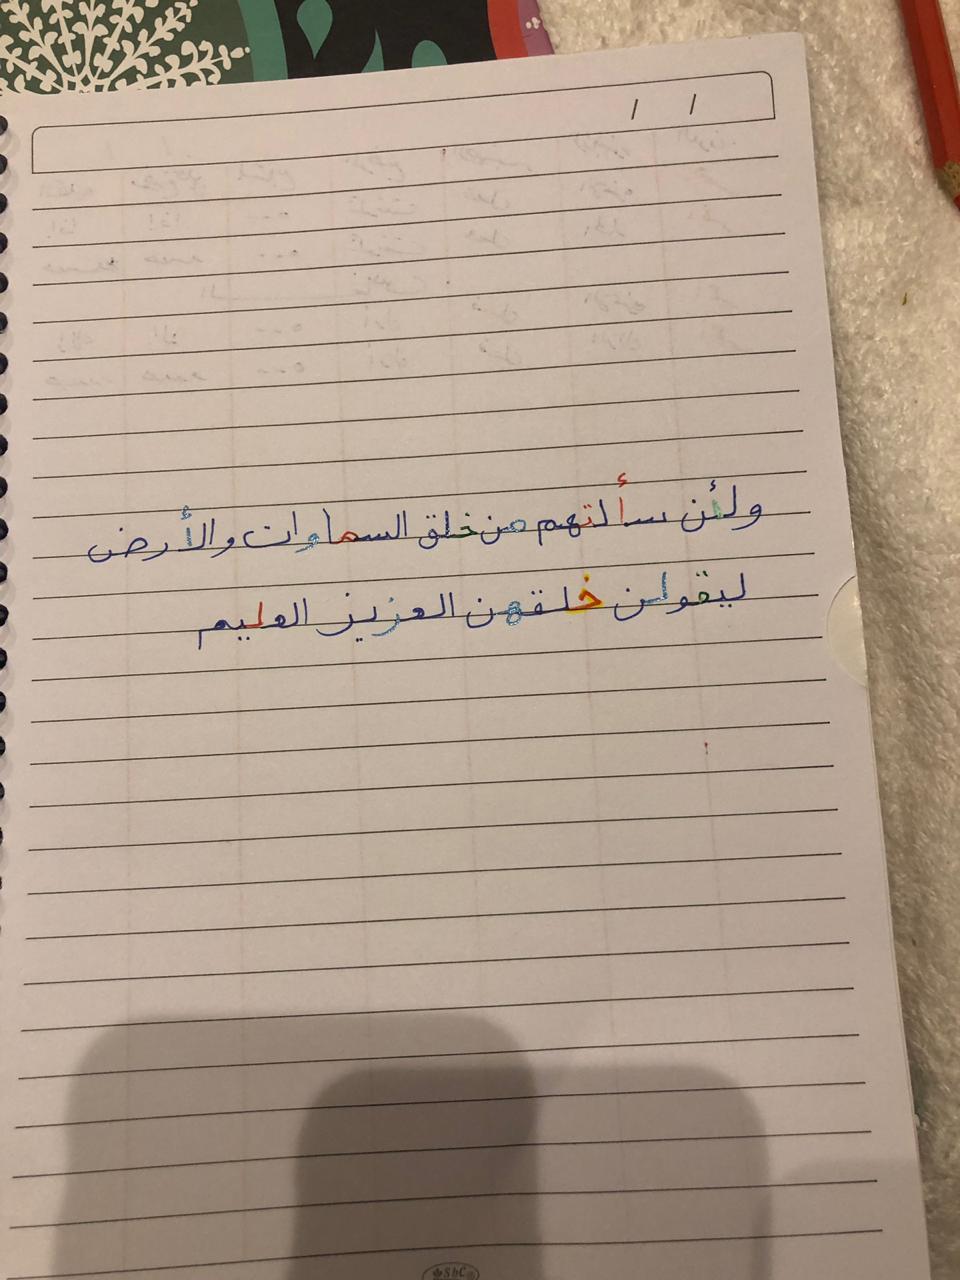 / /
ولئن سألتهم من خلق السماوات والأرض
ليقولن خلقهن العزيز العليم
SbC